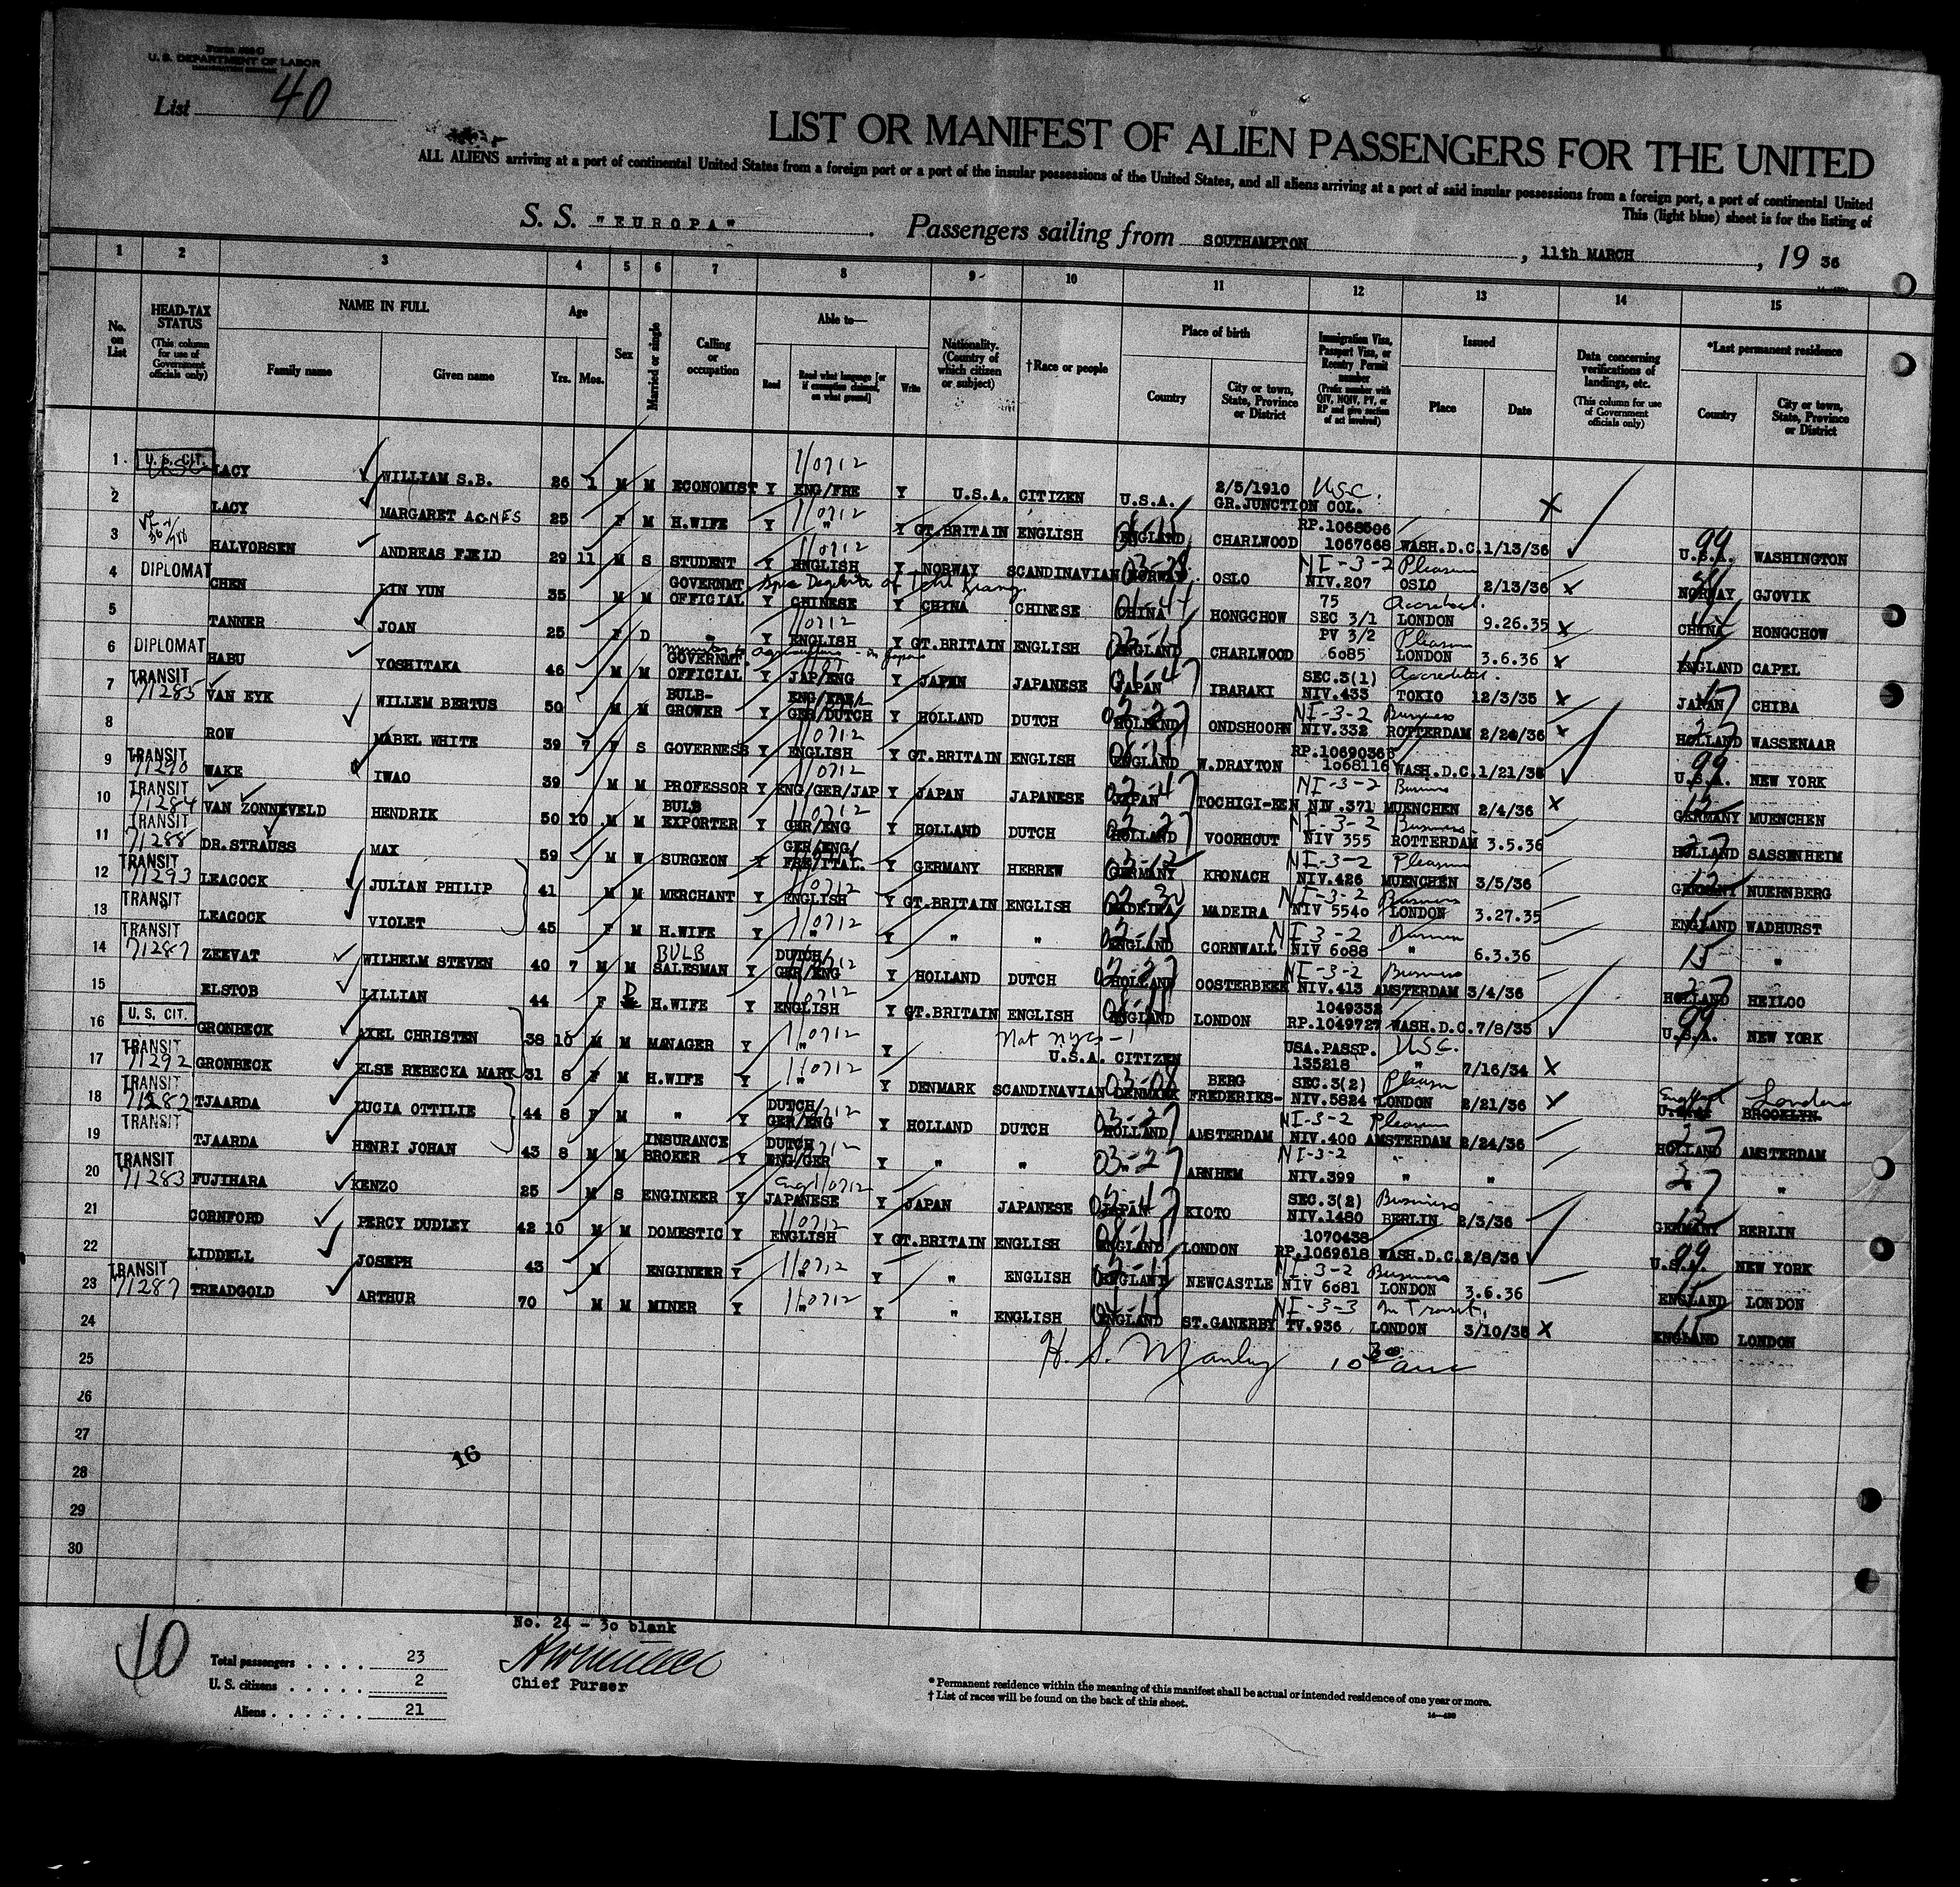 Form 500 C
U. S. DEPARTMENT OF LABOR
List 40
LIST OR MANIFEST OF ALIEN PASSENGERS FOR THE UNITED
ALL ALIENS arriving at a port of continental United States from a foreign port or a port of the insular possessions of the United States, and all aliens arriving at a port of said insular possessions from a foreign port, a port of continental United
This (light blue) sheet is for the listing of
S. S. "EUROPA". Passengers sailing from SOUTHAMPTON, 11th MARCH, 19 36
1 2 3 4 5 6 7 8 9 10 11 12 13 14 15
No. on List
HEAD-TAX STATUS (This column for use of Government officials only)
NAME IN FULL Family name Given name
Age Yrs. Mos.
Sex
Married or single
Calling or occupation
Able to— Read Read what language [or if exemption claimed, on what ground] Write
Nationality. (Country of which citizen or subject)
†Race or people
Place of birth Country City or town, State, Province or District
Immigration Visa, Passport Visa, or Reentry Permit number (Prefix number with QIV, NQIV, PV, or RP and give section of act involved)
Issued Place Date
Data concerning verifications of landings, etc. (This column for use of Government officials only)
*Last permanent residence Country City or town, State, Province or District
1 U. S. CIT. LACY WILLIAM S.B. 26 1 M M ECONOMIST Y ENG/FRE Y U.S.A. CITIZEN U.S.A. 2/5/1910 GR.JUNCTION COL. U.S.C.
2 LACY MARGARET AGNES 25 F M H.WIFE Y " Y GT.BRITAIN ENGLISH ENGLAND CHARLWOOD RP.1068506 1067668 WASH.D.C. 1/13/36 U.S.A. WASHINGTON
3 HALVORSEN ANDREAS FJELD 29 11 M S STUDENT Y ENGLISH Y NORWAY SCANDINAVIAN NORWAY OSLO NI-3-2 Pleasure NIV.207 OSLO 2/13/36 NORWAY GJOVIK
4 DIPLOMAT CHEN LIN YUN 35 M M GOVERNMT OFFICIAL Y CHINESE Y CHINA CHINESE CHINA HONGCHOW 75 SEC 3/1 LONDON 9.26.35 CHINA HONGCHOW
5 TANNER JOAN 25 F D " Y ENGLISH Y GT.BRITAIN ENGLISH ENGLAND CHARLWOOD PV 3/2 Pleasure 6085 LONDON 3.6.36 ENGLAND CAPEL
6 DIPLOMAT HABU YOSHITAKA 46 M M GOVERNMT. OFFICIAL Y JAP/ENG Y JAPAN JAPANESE JAPAN IBARAKI SEC.3(1) Accredited. NIV.433 TOKIO 12/3/35 JAPAN CHIBA
7 TRANSIT 71285 VAN EYK WILLEM BERTUS 50 M M BULB-GROWER Y ENG/FRE/ GER/DUTCH Y HOLLAND DUTCH HOLLAND ONDSHOORN NI-3-2 Business NIV.332 ROTTERDAM 2/26/36 HOLLAND WASSENAAR
8 ROW MABEL WHITE 39 7 F S GOVERNESS Y ENGLISH Y GT.BRITAIN ENGLISH ENGLAND W.DRAYTON 1068116 WASH.D.C. 1/21/36 U.S.A. NEW YORK
9 TRANSIT 71290 WAKE IWAO 39 M M PROFESSOR Y ENG/GER/JAP Y JAPAN JAPANESE JAPAN TOCHIGI-KEN NI-3-2 Business NIV.371 MUENCHEN 2/4/36 GERMANY MUENCHEN
10 TRANSIT 71284 VAN ZONNEVELD HENDRIK 50 10 M M BULB EXPORTER Y GER/ENG Y HOLLAND DUTCH HOLLAND VOORHOUT NI-3-2 Business NIV 355 ROTTERDAM 3.5.36 HOLLAND SASSENHEIM
11 TRANSIT 71288 DR.STRAUSS MAX 59 M W SURGEON Y GER/ENG/ FRE/ITAL. Y GERMANY HEBREW GERMANY KRONACH NI-3-2 Pleasure NIV.426 MUENCHEN 3/5/36 GERMANY NUERNBERG
12 TRANSIT 71293 LEACOCK JULIAN PHILIP 41 M M MERCHANT Y ENGLISH Y GT.BRITAIN ENGLISH MADEIRA MADEIRA NI-3-2 Business NIV 5540 LONDON 3.27.35 ENGLAND WADHURST
13 TRANSIT " LEACOCK VIOLET 45 F M H.WIFE Y " Y " " ENGLAND CORNWALL NI-3-2 Business NIV 6088 " 6.3.36 15 "
14 TRANSIT 71287 ZEEVAT WILHELM STEVEN 40 7 M M BULB SALESMAN Y DUTCH/ GER/ENG Y HOLLAND DUTCH HOLLAND OOSTERBEEK NI-3-2 Business NIV.413 AMSTERDAM 3/4/36 HOLLAND HEILOO
15 ELSTOB LILLIAN 44 F D H.WIFE Y ENGLISH Y GT.BRITAIN ENGLISH ENGLAND LONDON 1049332 RP.1049727 WASH.D.C. 7/8/35 U.S.A. NEW YORK
16 U. S. CIT. GRONBECK AXEL CHRISTEN 38 10 M M MANAGER Y " Y U.S.A. CITIZEN USA.PASSP. USC. 135218 " 7/16/34
17 TRANSIT 71292 GRONBECK ELSE REBECKA MARY 31 8 F M H.WIFE Y " Y DENMARK SCANDINAVIAN DENMARK BERG FREDERIKS- SEC.3(2) Pleasure NIV.5824 LONDON 2/21/36 England London BROOKLYN
18 TRANSIT 71282 TJAARDA LUCIA OTTILIE 44 8 F M " Y DUTCH/ GER/ENG Y HOLLAND DUTCH HOLLAND AMSTERDAM NI-3-2 Pleasure NIV.400 AMSTERDAM 2/24/36 HOLLAND AMSTERDAM
19 TRANSIT TJAARDA HENRI JOHAN 43 8 M M INSURANCE BROKER Y DUTCH ENG/GER Y " " 03-27 ARNHEM NI-3-2 " NIV.399 " " 27 "
20 TRANSIT 71283 FUJIHARA KENZO 25 M S ENGINEER Y JAPANESE Y JAPAN JAPANESE JAPAN KIOTO SEC.3(2) Business NIV.1480 BERLIN 2/3/36 GERMANY BERLIN
21 CORNFORD PERCY DUDLEY 42 10 M M DOMESTIC Y ENGLISH Y GT.BRITAIN ENGLISH ENGLAND LONDON 1070438 RP.1069618 WASH.D.C. 2/8/36 U.S.A. NEW YORK
22 LIDDELL JOSEPH 43 M ENGINEER Y " Y " ENGLISH ENGLAND NEWCASTLE NI-3-2 Business NIV 6081 LONDON 3.6.36 ENGLAND LONDON
23 TRANSIT 71287 TREADGOLD ARTHUR 70 M M MINER Y " Y " ENGLISH ENGLAND ST.GANERBY NI-3-3 In Transit. TV.936 LONDON 3/10/36 ENGLAND LONDON
24
25 H. S. Manley
26
27
28
29
30
16
No. 24 - 30 blank
40
Total passengers . . . . 23
U. S. citizens . . . . . 2
Aliens . . . . . . 21
Chief Purser
* Permanent residence within the meaning of this manifest shall be actual or intended residence of one year or more.
† List of races will be found on the back of this sheet.